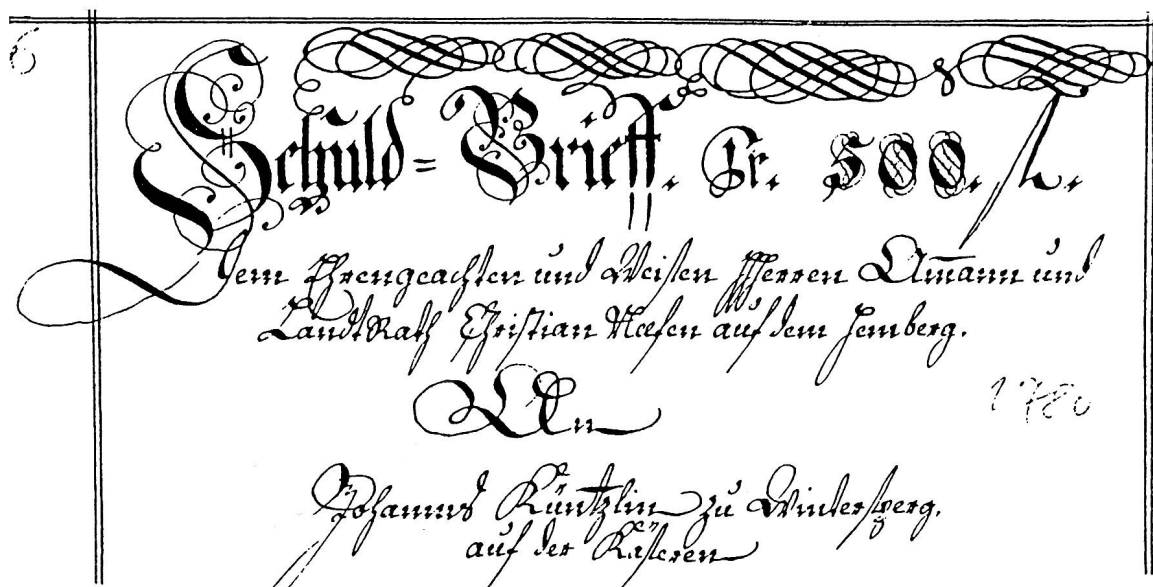 Schuld=Brieff. Pr. 500. fl.
dem Ehrengeachten und Weisen Hherren Amann und
LandtRath Christian Næfen auf dem Hemberg.
An
1780
Johannes Küntzlin zu Wintersperg.
auf der Käseren